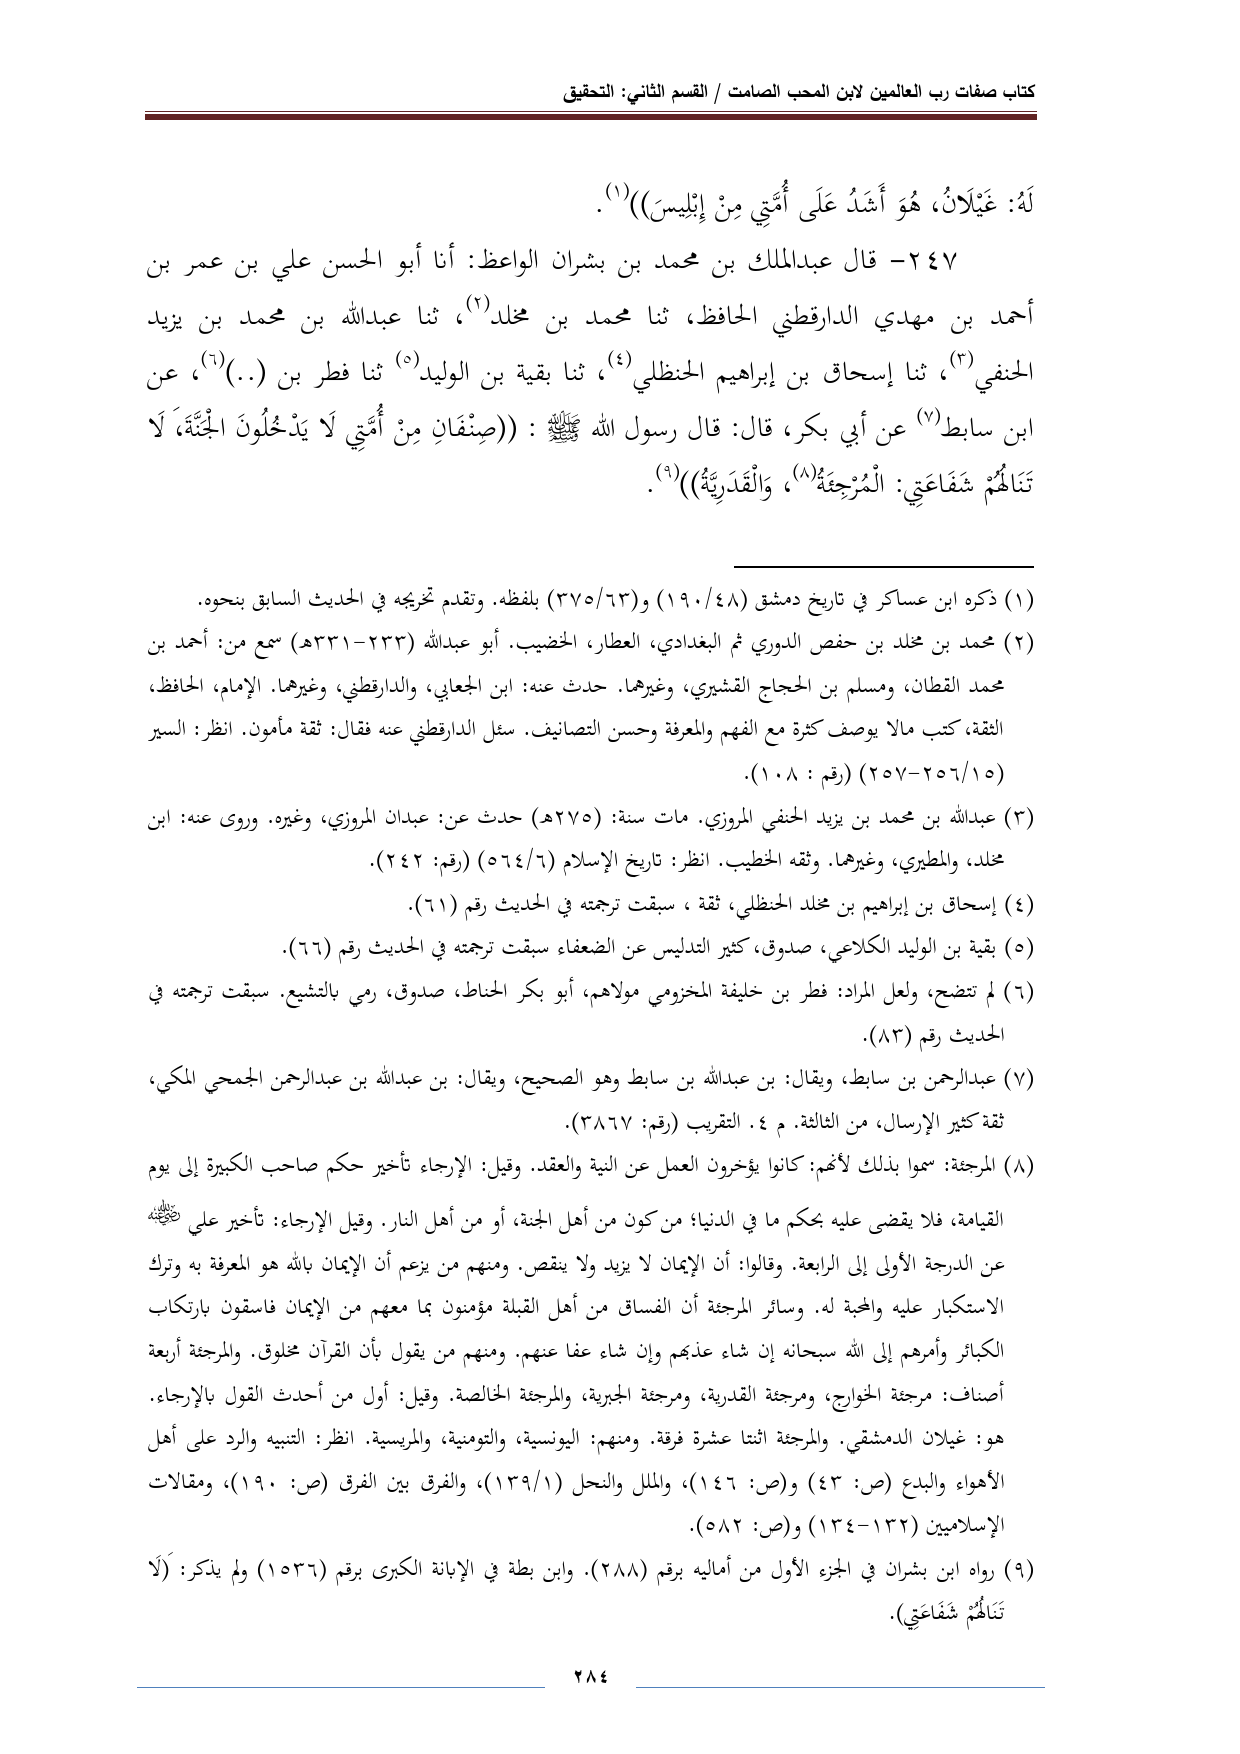 كتاب صفات رب العالمين لابن المحب الصامت / القسم الثاني: التحقيق
لَهُ: غَيْلَانُ، هُوَ أَشَدُ عَلَى أُمَّتِي مِنْ إِبْلِيسَ))(١).
٢٤٧- قال عبدالملك بن محمد بن بشران الواعظ: أنا أبو الحسن علي بن عمر بن
أحمد بن مهدي الدارقطني الحافظ، ثنا محمد بن مخلد(٢)، ثنا عبدالله بن محمد بن يزيد
الحنفي(٣)، ثنا إسحاق بن إبراهيم الحنظلي(٤)، ثنا بقية بن الوليد(٥) ثنا فطر بن (..)(٦)، عن
ابن سابط(٧) عن أبي بكر، قال: قال رسول الله ﷺ : ((صِنْفَانِ مِنْ أُمَّتِي لَا يَدْخُلُونَ الْجَنَّةَ، لَا
تَنَالُهُمْ شَفَاعَتِي: الْمُرْجِئَةُ(٨)، وَالْقَدَرِيَّةُ))(٩).
(١) ذكره ابن عساكر في تاريخ دمشق (١٩٠/٤٨) و(٣٧٥/٦٣) بلفظه. وتقدم تخريجه في الحديث السابق بنحوه.
(٢) محمد بن مخلد بن حفص الدوري ثم البغدادي، العطار، الخضيب. أبو عبدالله (٢٣٣-٣٣١هـ) سمع من: أحمد بن
محمد القطان، ومسلم بن الحجاج القشيري، وغيرهما. حدث عنه: ابن الجعابي، والدارقطني، وغيرهما. الإمام، الحافظ،
الثقة، كتب مالا يوصف كثرة مع الفهم والمعرفة وحسن التصانيف. سئل الدارقطني عنه فقال: ثقة مأمون. انظر: السير
(٢٥٦/١٥-٢٥٧) (رقم : ١٠٨).
(٣) عبدالله بن محمد بن يزيد الحنفي المروزي. مات سنة: (٢٧٥هـ) حدث عن: عبدان المروزي، وغيره. وروى عنه: ابن
مخلد، والمطيري، وغيرهما. وثقه الخطيب. انظر: تاريخ الإسلام (٥٦٤/٦) (رقم: ٢٤٢).
(٤) إسحاق بن إبراهيم بن مخلد الحنظلي، ثقة ، سبقت ترجمته في الحديث رقم (٦١).
(٥) بقية بن الوليد الكلاعي، صدوق، كثير التدليس عن الضعفاء سبقت ترجمته في الحديث رقم (٦٦).
(٦) لم تتضح، ولعل المراد: فطر بن خليفة المخزومي مولاهم، أبو بكر الحناط، صدوق، رمي بالتشيع. سبقت ترجمته في
الحديث رقم (٨٣).
(٧) عبدالرحمن بن سابط، ويقال: بن عبدالله بن سابط وهو الصحيح، ويقال: بن عبدالله بن عبدالرحمن الجمحي المكي،
ثقة كثير الإرسال، من الثالثة. م ٤. التقريب (رقم: ٣٨٦٧).
(٨) المرجئة: سموا بذلك لأنهم: كانوا يؤخرون العمل عن النية والعقد. وقيل: الإرجاء تأخير حكم صاحب الكبيرة إلى يوم
القيامة، فلا يقضى عليه بحكم ما في الدنيا؛ من كون من أهل الجنة، أو من أهل النار. وقيل الإرجاء: تأخير علي رضي الله عنه
عن الدرجة الأولى إلى الرابعة. وقالوا: أن الإيمان لا يزيد ولا ينقص. ومنهم من يزعم أن الإيمان بالله هو المعرفة به وترك
الاستكبار عليه والمحبة له. وسائر المرجئة أن الفساق من أهل القبلة مؤمنون بما معهم من الإيمان فاسقون بارتكاب
الكبائر وأمرهم إلى الله سبحانه إن شاء عذبهم وإن شاء عفا عنهم. ومنهم من يقول بأن القرآن مخلوق. والمرجئة أربعة
أصناف: مرجئة الخوارج، ومرجئة القدرية، ومرجئة الجبرية، والمرجئة الخالصة. وقيل: أول من أحدث القول بالإرجاء.
هو: غيلان الدمشقي. والمرجئة اثنتا عشرة فرقة. ومنهم: اليونسية، والتومنية، والمريسية. انظر: التنبيه والرد على أهل
الأهواء والبدع (ص: ٤٣) و(ص: ١٤٦)، والملل والنحل (١٣٩/١)، والفرق بين الفرق (ص: ١٩٠)، ومقالات
الإسلاميين (١٣٢-١٣٤) و(ص: ٥٨٢).
(٩) رواه ابن بشران في الجزء الأول من أماليه برقم (٢٨٨). وابن بطة في الإبانة الكبرى برقم (١٥٣٦) ولم يذكر: (لَا
تَنَالُهُمْ شَفَاعَتِي).
٢٨٤